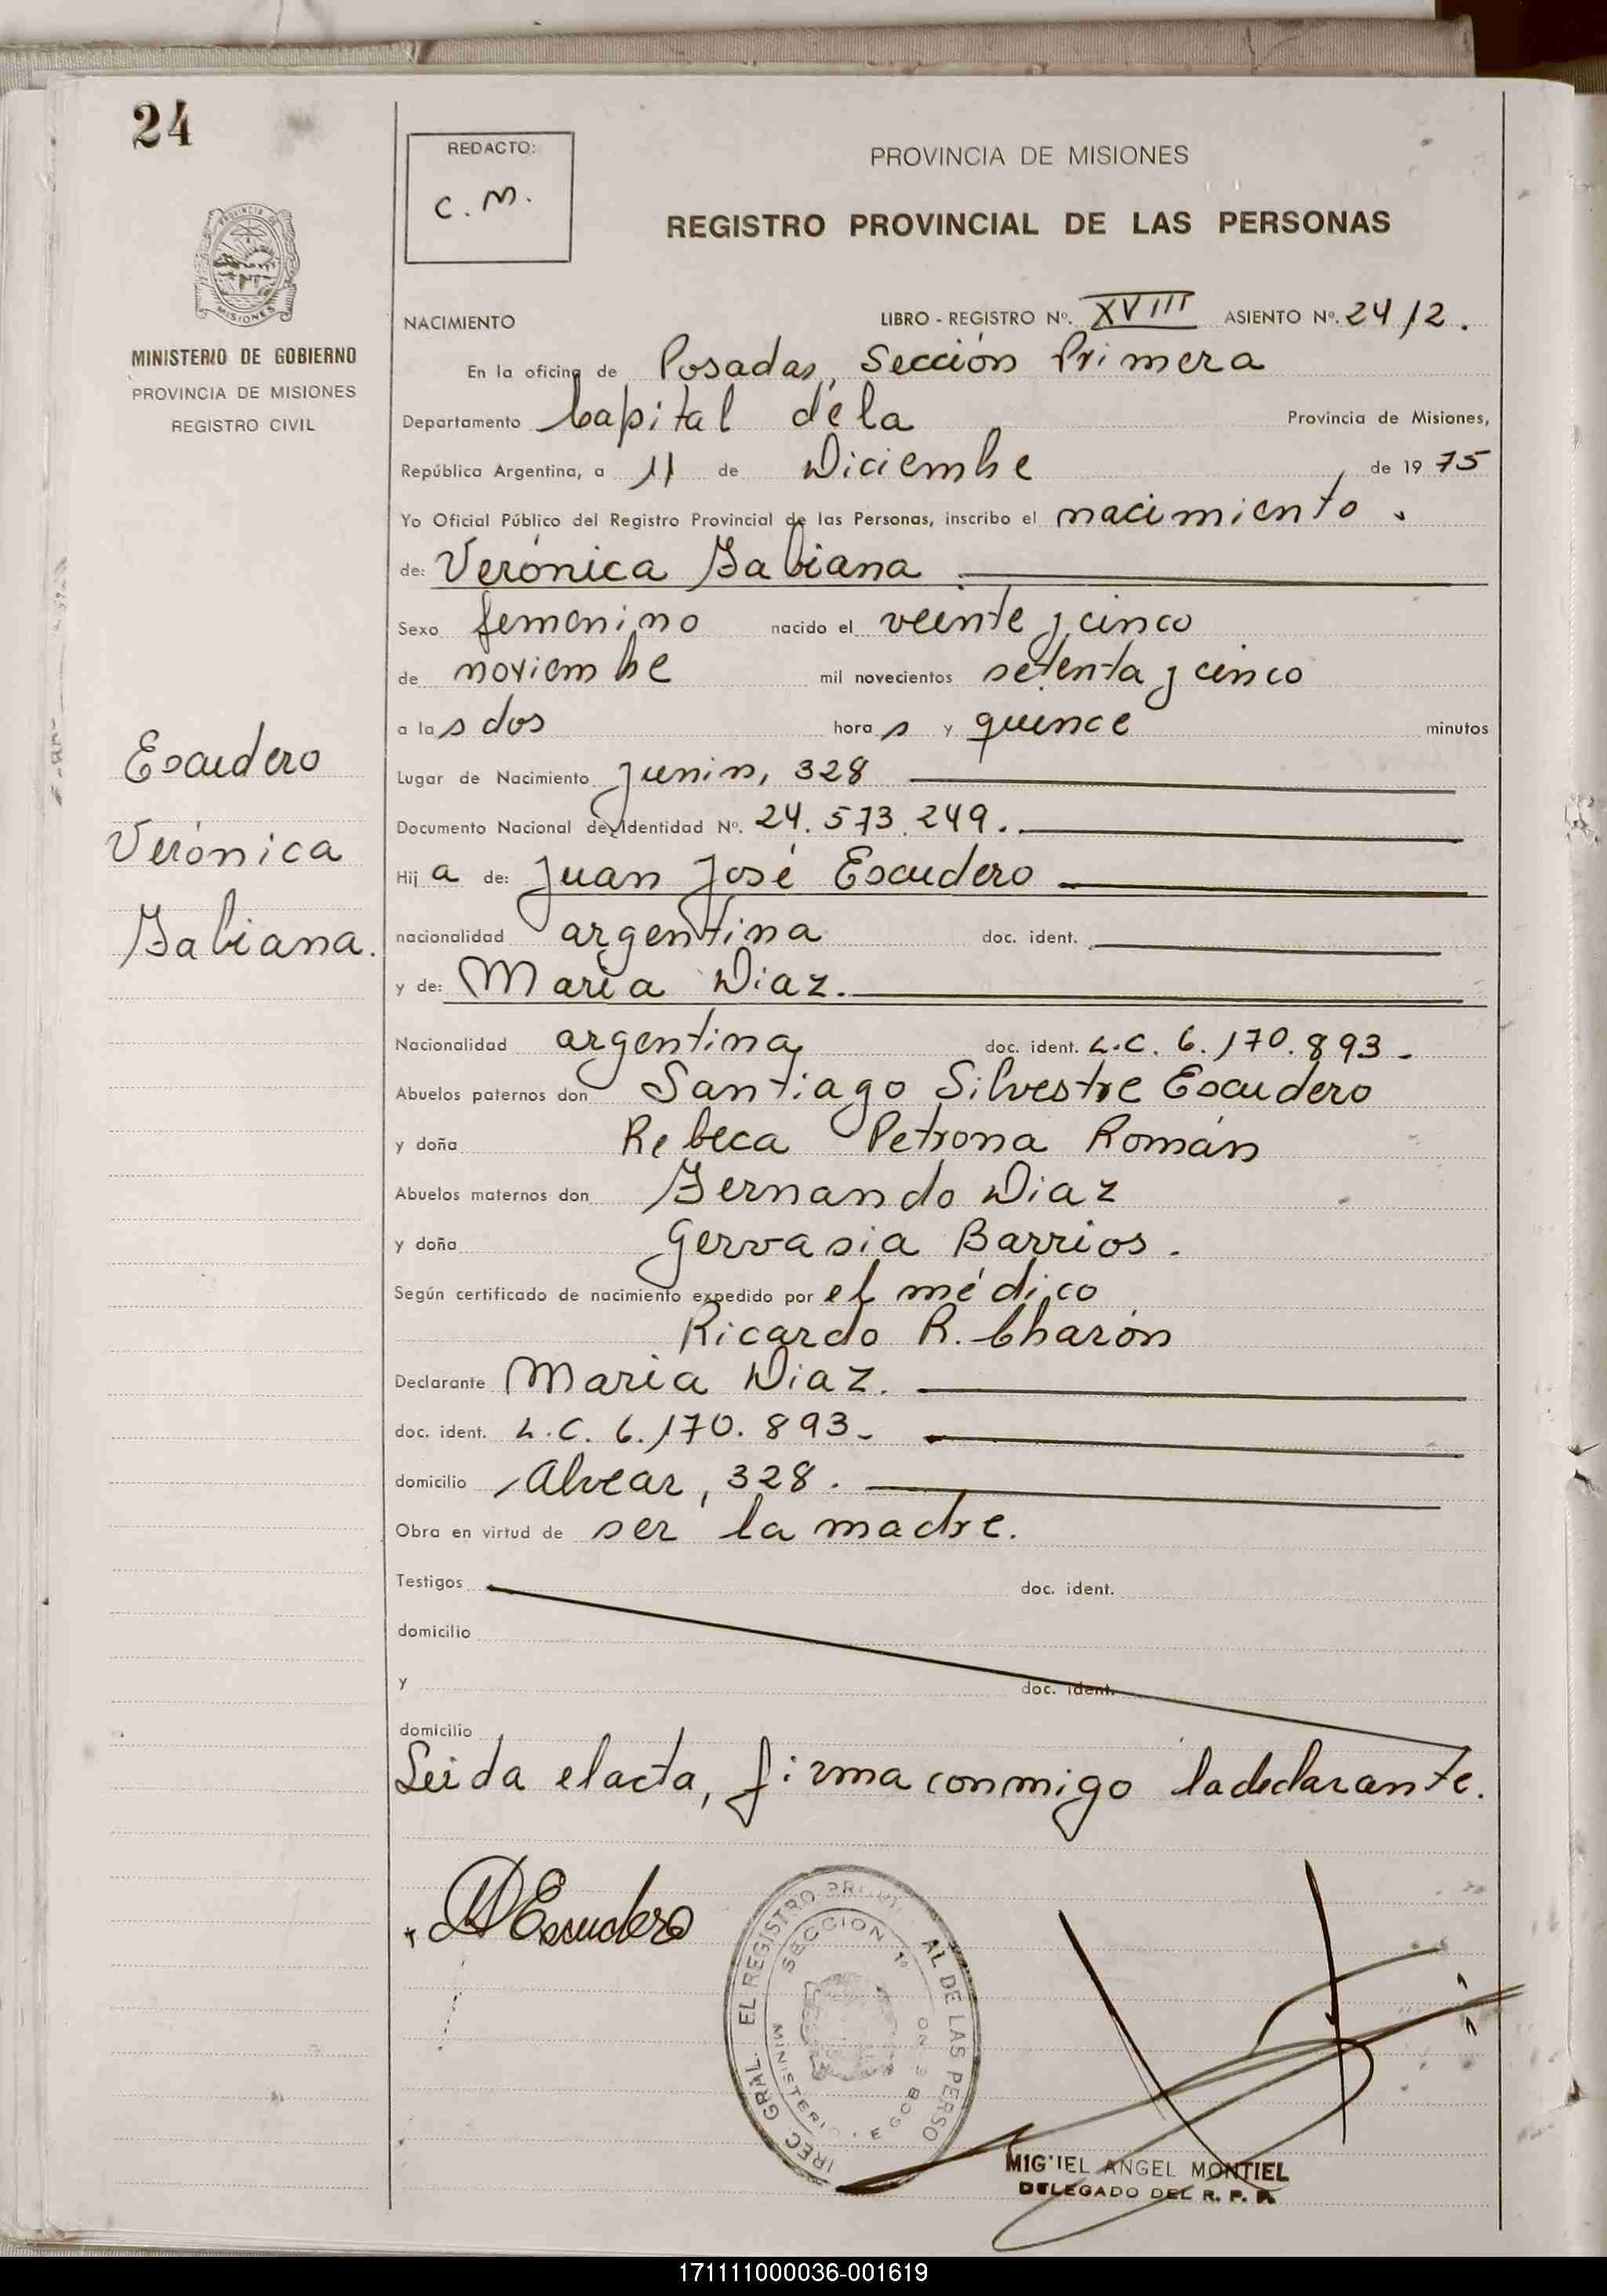 24
REDACTO:
C. M.
PROVINCIA DE MISIONES
REGISTRO PROVINCIAL DE LAS PERSONAS
PROVINCIA DE
MISIONES
MINISTERIO DE GOBIERNO
PROVINCIA DE MISIONES
REGISTRO CIVIL
NACIMIENTO LIBRO - REGISTRO Nº. XVIII ASIENTO Nº. 2412.
En la oficina de Posadas, Sección Primera
Departamento Capital dela Provincia de Misiones,
República Argentina, a 11 de Diciembre de 1975
Yo Oficial Público del Registro Provincial de las Personas, inscribo el nacimiento.
de: Verónica Fabiana
Sexo femenino nacido el veinte y cinco
de noviembre mil novecientos setenta y cinco
a las dos horas y quince minutos
Lugar de Nacimiento Junin, 328
Documento Nacional de Identidad Nº. 24.573.249.
Hija de: Juan José Escudero
nacionalidad argentina doc. ident.
y de: Maria Diaz.
Nacionalidad argentina doc. ident. L.C. 6.170.893-
Abuelos paternos don Santiago Silvestre Escudero
y doña Rebeca Petrona Román
Abuelos maternos don Fernando Diaz
y doña Gervasia Barrios.
Según certificado de nacimiento expedido por el médico
Ricardo R. Charón
Declarante Maria Diaz.
doc. ident. L.C. 6.170.893-
domicilio Alvear, 328.
Obra en virtud de ser la madre.
Testigos doc. ident.
domicilio
y doc. ident.
domicilio
Leida el acta, firma conmigo la declarante.
Escudero
Verónica
Fabiana.
MDEscudero
DIREC. GRAL. DEL REGISTRO PROVINCIAL DE LAS PERSO
SECCION 1ª
MINISTERIO DE GOBIERNO
MIGUEL ANGEL MONTIEL
DELEGADO DEL R. P. P.
171111000036-001619